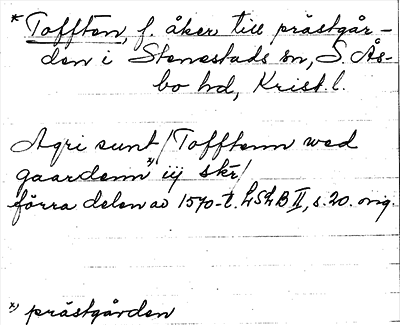 * Tofften, f. åker till prästgår-
den i Stenestads sn, S. Ås-
bo hd, Krist. l.
Agri sunt / Tofftenn wed
gaardenn *) iij skr /
förra delen av 1570-t. LSLB II, s. 20. orig.
*) prästgården